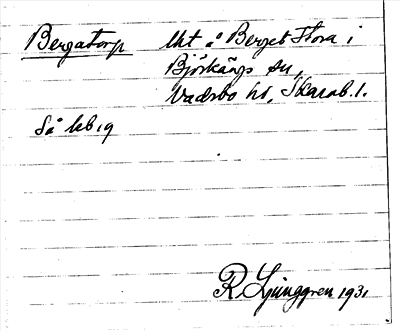 Bergatorp lht å Berget Stora i
Björkängs sn,
Vadsbo hd, Skarab. l.
Så lb 19
R. Ljunggren 1931